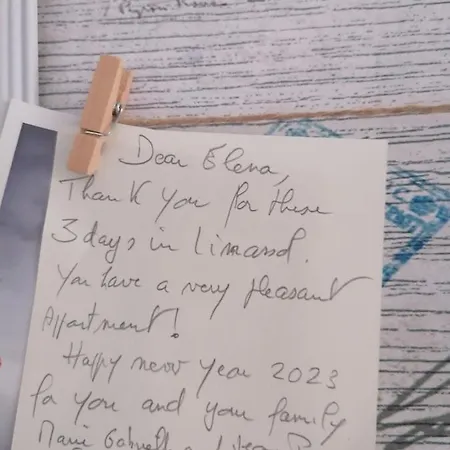 Dear Elena,
Thank you for these
3 days in Limassol.
You have a very pleasant
Appartment!
Happy new year 2023
for you and your family